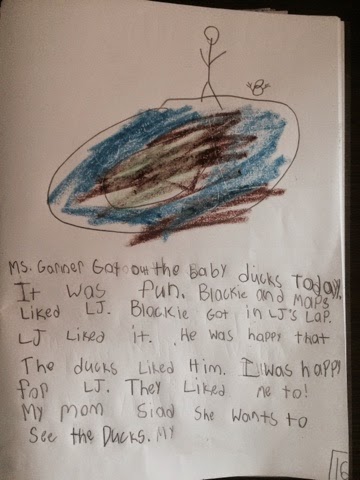 Ms. Gonner Got out the baby ducks today.
It was fun. Blackie and Maps
Liked LJ. Blackie Got in LJ's Lap.
LJ Liked it. He was happy that
The ducks Liked Him. I was happy
for LJ. They Liked me to!
My mom Siad She wants to
See the Ducks. My
16